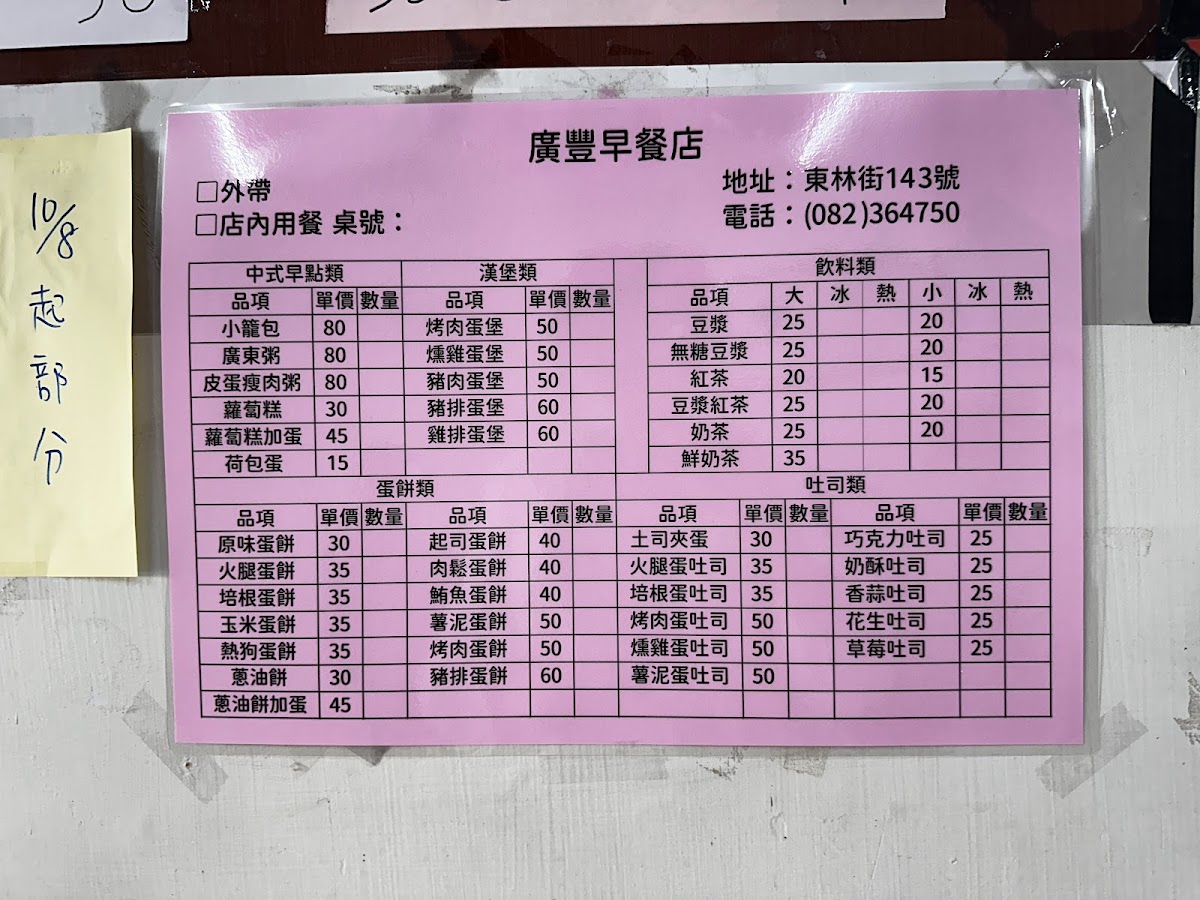 廣豐早餐店
□外帶
□店內用餐 桌號：
地址：東林街143號
電話：(082)364750
中式早點類 漢堡類 飲料類
品項 單價 數量 品項 單價 數量 品項 大 冰 熱 小 冰 熱
小籠包 80 烤肉蛋堡 50 豆漿 25 20
廣東粥 80 燻雞蛋堡 50 無糖豆漿 25 20
皮蛋瘦肉粥 80 豬肉蛋堡 50 紅茶 20 15
蘿蔔糕 30 豬排蛋堡 60 豆漿紅茶 25 20
蘿蔔糕加蛋 45 雞排蛋堡 60 奶茶 25 20
荷包蛋 15 鮮奶茶 35
蛋餅類 吐司類
品項 單價 數量 品項 單價 數量 品項 單價 數量 品項 單價 數量
原味蛋餅 30 起司蛋餅 40 土司夾蛋 30 巧克力吐司 25
火腿蛋餅 35 肉鬆蛋餅 40 火腿蛋吐司 35 奶酥吐司 25
培根蛋餅 35 鮪魚蛋餅 40 培根蛋吐司 35 香蒜吐司 25
玉米蛋餅 35 薯泥蛋餅 50 烤肉蛋吐司 50 花生吐司 25
熱狗蛋餅 35 烤肉蛋餅 50 燻雞蛋吐司 50 草莓吐司 25
蔥油餅 30 豬排蛋餅 60 薯泥蛋吐司 50
蔥油餅加蛋 45
10/8
起
部
分